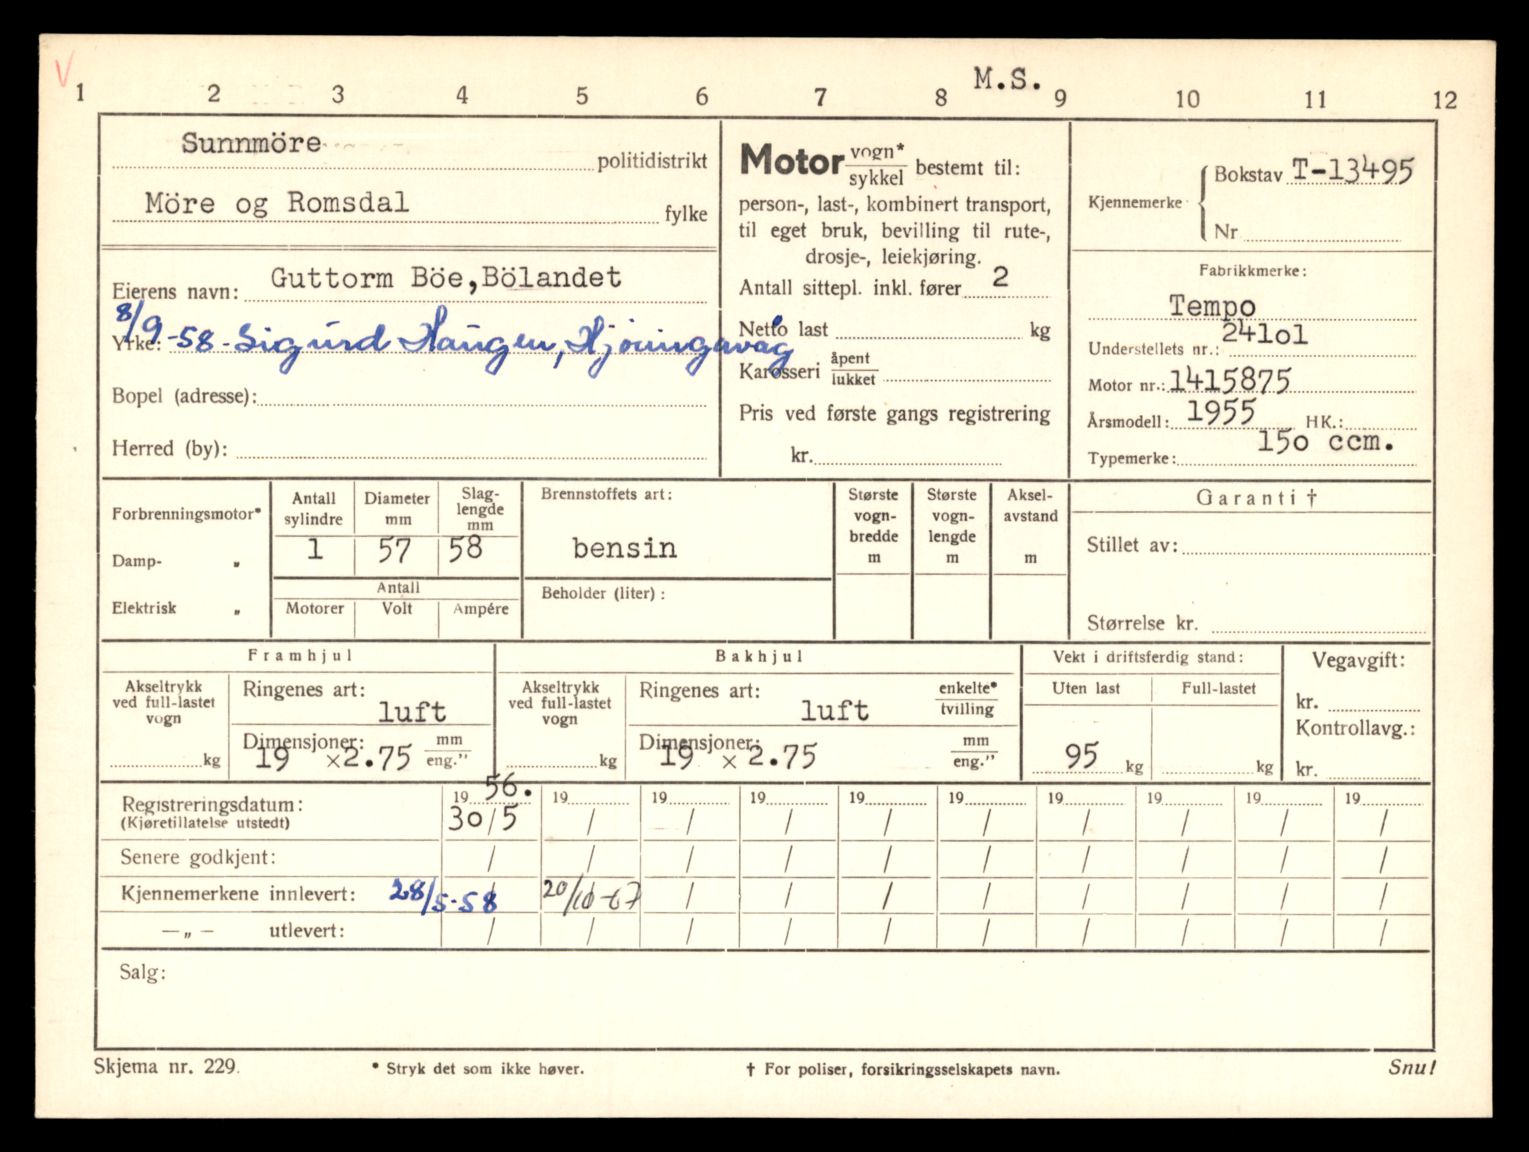 V
M.S.
1 2 3 4 5 6 7 8 9 10 11 12
Sunnmöre politidistrikt
Möre og Romsdal fylke
Eierens navn: Guttorm Böe, Bölandet
8/9-58- Sigurd Haugen,
Yrke:
Bopel (adresse):
Herred (by):
Motor vogn* / sykkel bestemt til:
person-, last-, kombinert transport,
til eget bruk, bevilling til rute-,
drosje-, leiekjøring.
Antall sittepl. inkl. fører 2
Netto last kg
Karosseri åpent / lukket
Pris ved første gangs registrering
kr.
Kjennemerke { Bokstav T-13495
Nr
Fabrikkmerke:
Tempo
Understellets nr.: 241o1
Motor nr.: 1415875
Årsmodell: 1955 HK.:
Typemerke: 15o ccm.
Forbrenningsmotor*
Damp- „
Elektrisk „
Antall sylindre Diameter mm Slag-lengde mm
1 57 58
Antall
Motorer Volt Ampére
Brennstoffets art:
bensin
Beholder (liter):
Største vogn-bredde m
Største vogn-lengde m
Aksel-avstand m
Garanti †
Stillet av:
Størrelse kr.
Framhjul
Akseltrykk
ved full-lastet
vogn
kg
Ringenes art:
luft
Dimensjoner: mm
19 × 2.75 eng."
Bakhjul
Akseltrykk
ved full-lastet
vogn
kg
Ringenes art: enkelte* / tvilling
luft
Dimensjoner: mm
19 × 2.75 eng."
Vekt i driftsferdig stand:
Uten last Full-lastet
95 kg kg
Vegavgift:
kr.
Kontrollavg.:
kr.
Registreringsdatum: 19 56. 19 19 19 19 19 19 19 19 19
(Kjøretillatelse utstedt) 3o/5 / / / / / / / / /
Senere godkjent: / / / / / / / / / /
Kjennemerkene innlevert: 28/5-58 20/10-67 / / / / / / / /
—„— utlevert: / / / / / / / / / /
Salg:
Skjema nr. 229. * Stryk det som ikke høver. † For poliser, forsikringsselskapets navn. Snu!